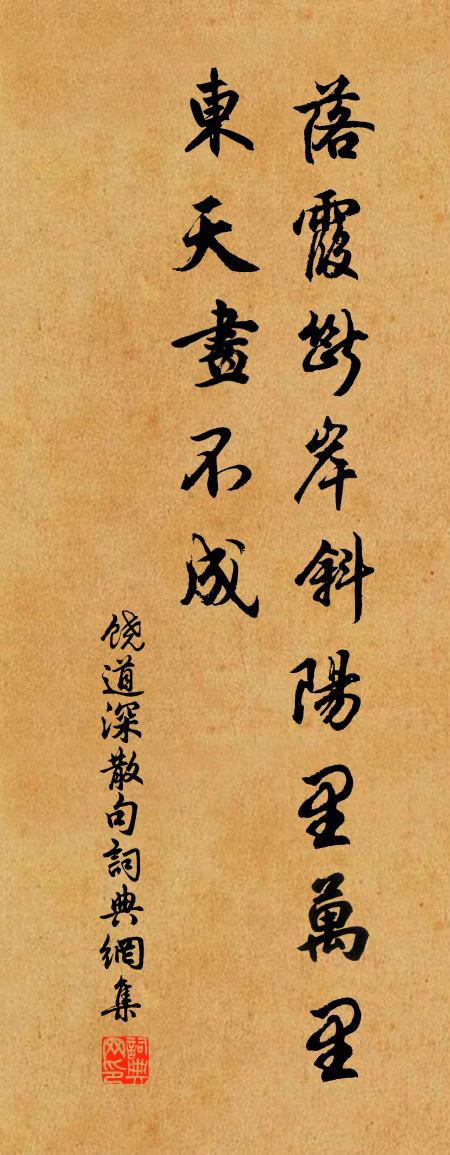 落霞斷岸斜陽里萬里
東天畫不成
饒道深散句詞典網集
詞典網印